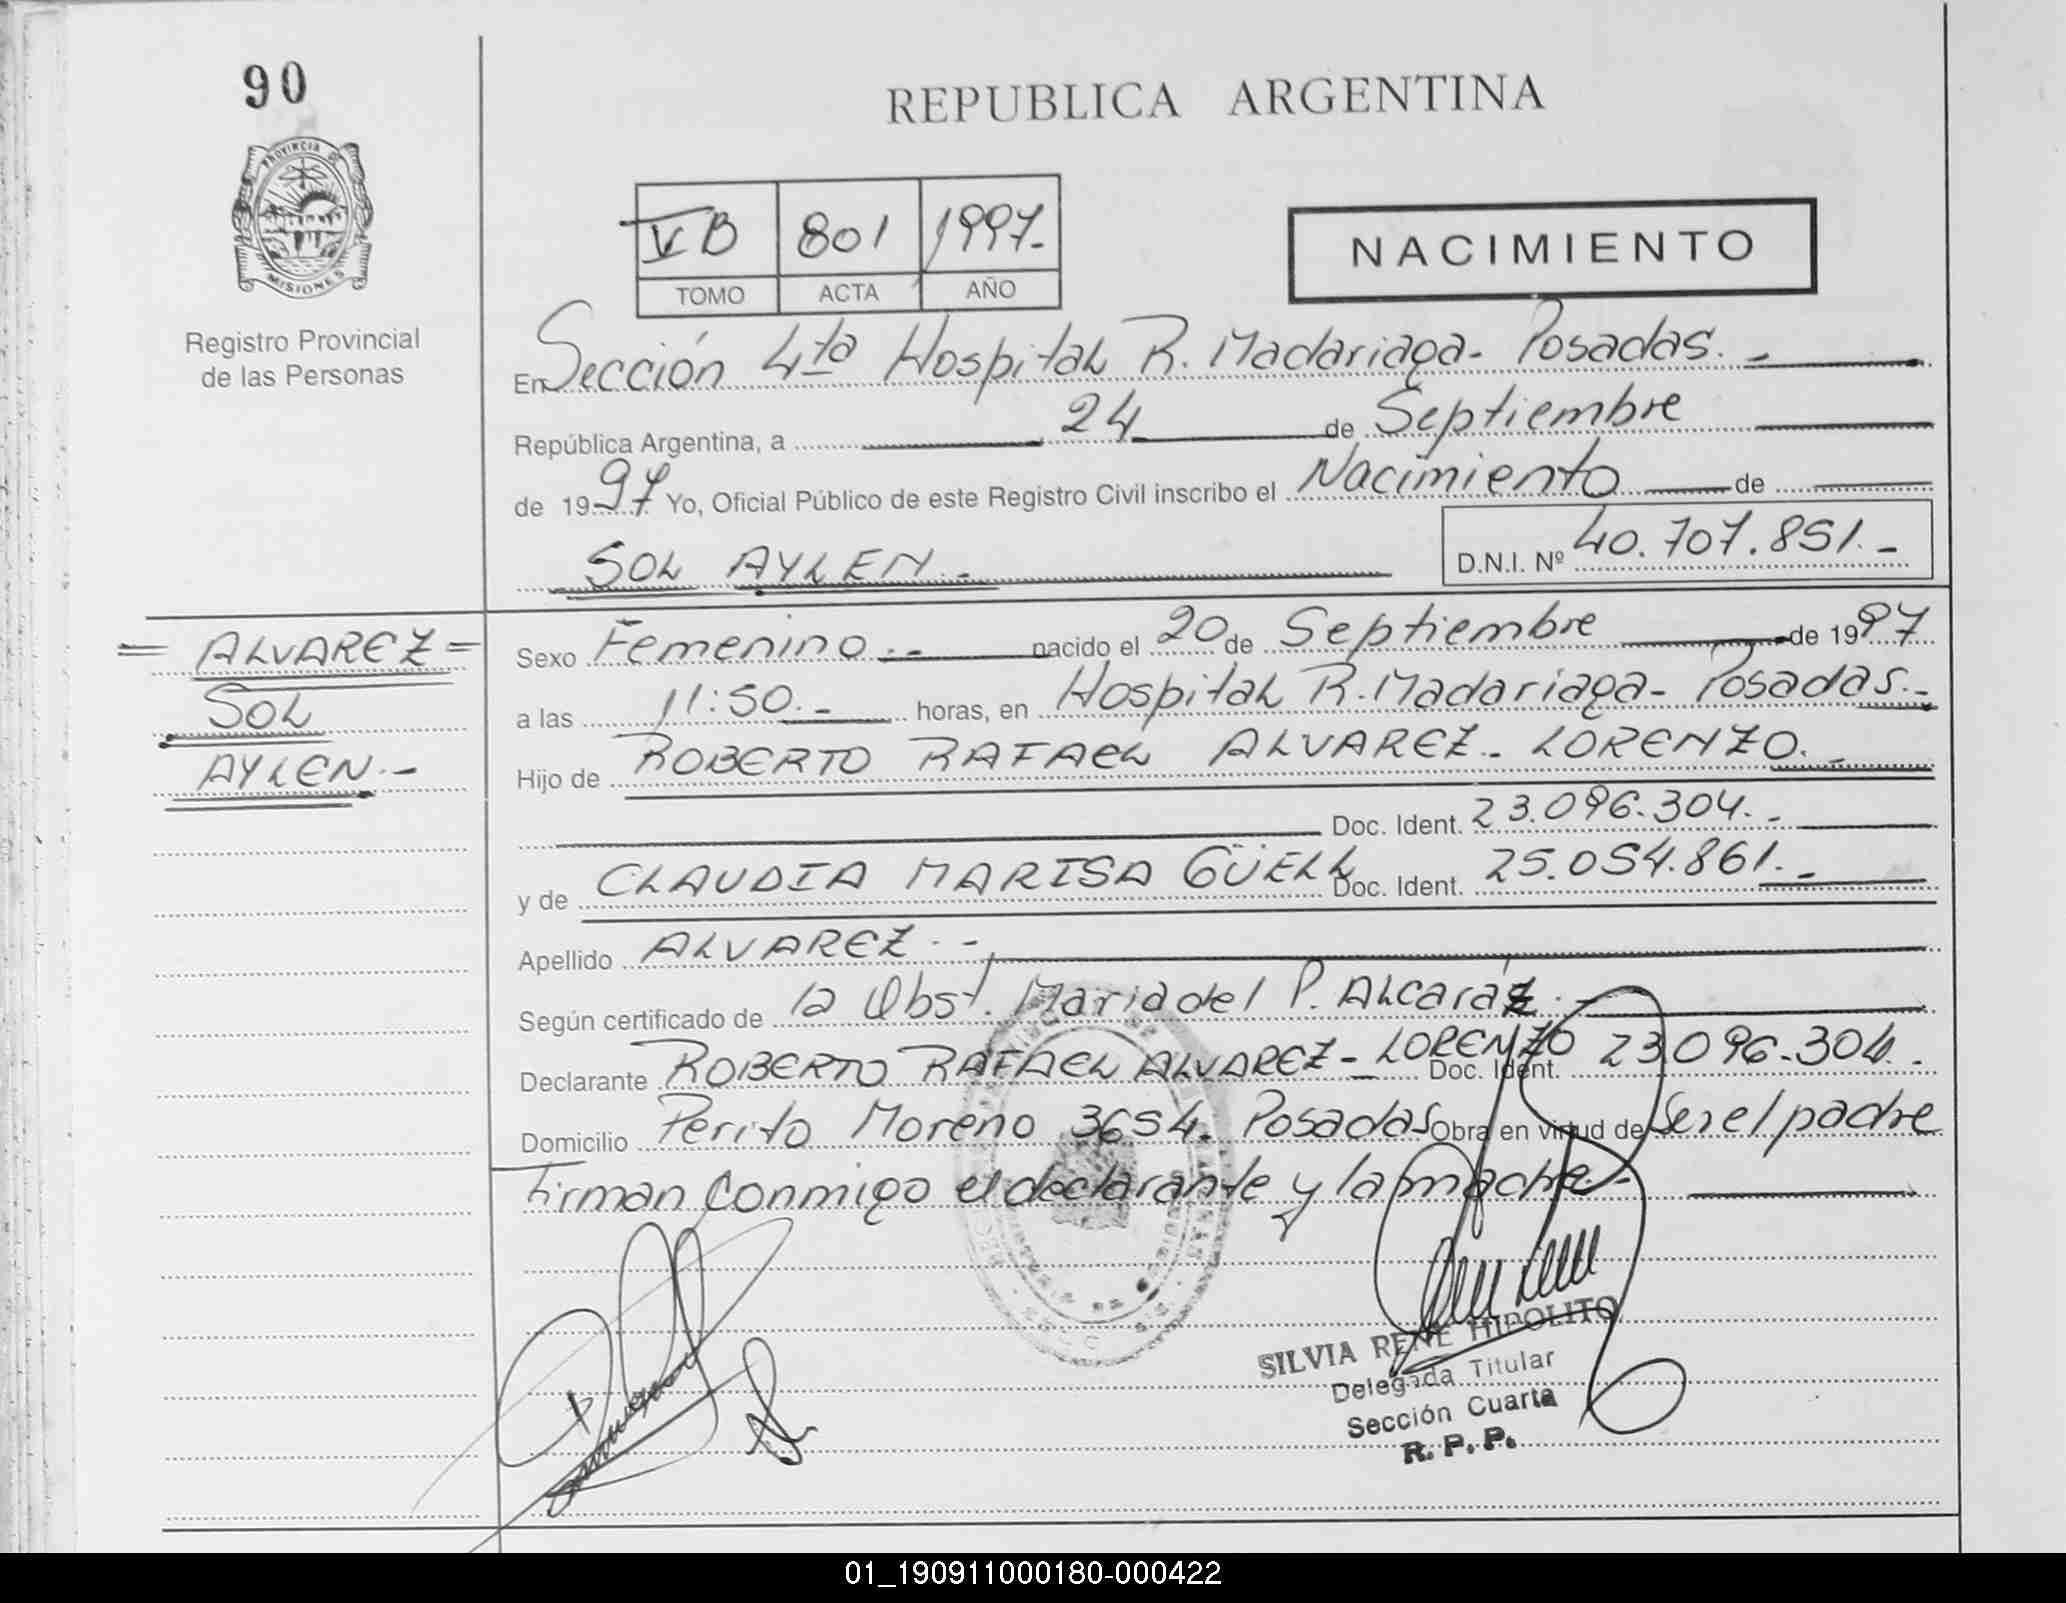 90
REPUBLICA ARGENTINA
PROVINCIA DE
MISIONES
VB 801 1997.-
TOMO ACTA AÑO
NACIMIENTO
Registro Provincial
de las Personas
En Sección 4ta Hospital R. Madariaga- Posadas.-
República Argentina, a 24 de Septiembre
de 1997 Yo, Oficial Público de este Registro Civil inscribo el Nacimiento de
SOL AYLEN.- D.N.I. Nº 40.707.851.-
=ALVAREZ=
SOL
AYLEN.-
Sexo Femenino.- nacido el 20 de Septiembre de 1997
a las 11:50.- horas, en Hospital R. Madariaga- Posadas.-
Hijo de ROBERTO RAFAEL ALVAREZ- LORENZO.-
Doc. Ident. 23.096.304.-
y de CLAUDIA MARISA GÜELL Doc. Ident. 25.054.861.-
Apellido ALVAREZ.-
Según certificado de la Obst. Maria del P. Alcaráz.-
Declarante ROBERTO RAFAEL ALVAREZ- LORENZO Doc. Ident. 23.096.304.-
Domicilio Perito Moreno 3654. Posadas Obra en virtud de Ser el padre
Firman conmigo el declarante y la madre.-
SILVIA RENE HIPOLITO
Delegada Titular
Sección Cuarta
R. P. P.
01_190911000180-000422